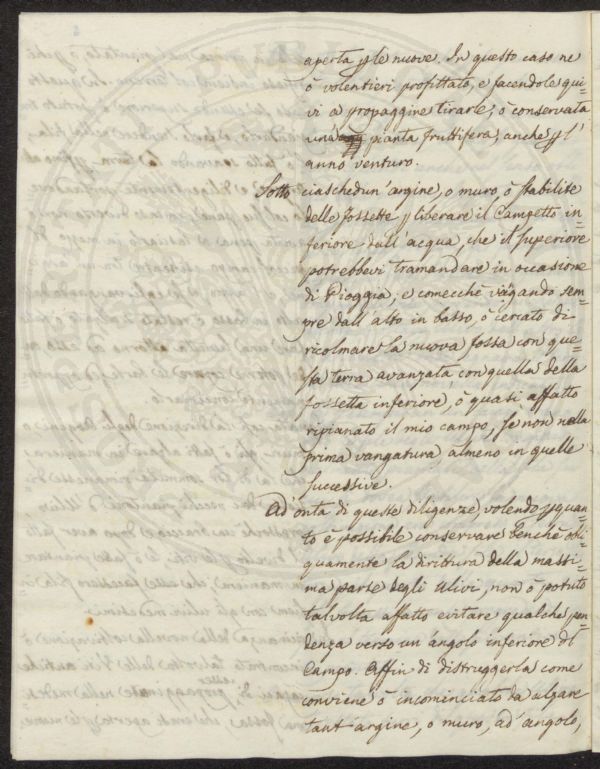 aperta p le nuove. In questo caso ne
ò volentieri profittato, e facendole qui=
vi a propaggine tirare; ò conservata
una pianta fruttifera, anche p l'
anno venturo.
Sotto ciaschedun' argine, o muro, ò stabilite
delle fossette p liberare il Campetto in=
feriore dall' acqua, che il superiore
potrebbevi tramandare in occasione
di Pioggia; e comecchè vangando sem=
pre dall' alto in basso, ò cercato di
ricolmare la nuova fossa con que=
sta terra avanzata, con quella della
fossetta inferiore, ò quasi affatto
ripianato il mio campo, sè non nella
prima vangatura, almeno in quelle
successive.
Ad' onta di queste diligenze, volendo p quan=
to è possibile conservare benchè obli=
quamente la dirittura della massi=
ma parte degli Ulivi, non ò potuto
talvolta affatto evitare qualche pen=
denza verso un' angolo inferiore del
Campo. Affin di distruggerla come
conviene ò incominciato da alzare
tant' argine, o muro, ad' angolo,